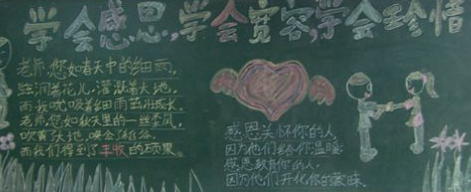 学会感恩,学会宽容,学会珍惜
老师,您如春天中的细雨,
滋润着花儿,灌溉着大地,
而我吮吸着细雨茁壮成长。
老师,您如秋天里的一丝季风,
吹黄大地,唤金
而我们得到了丰收的硕果。
感恩关怀你的人,
因为他们给你温暖;
感恩教育你的人,
因为他们开化你的蒙昧